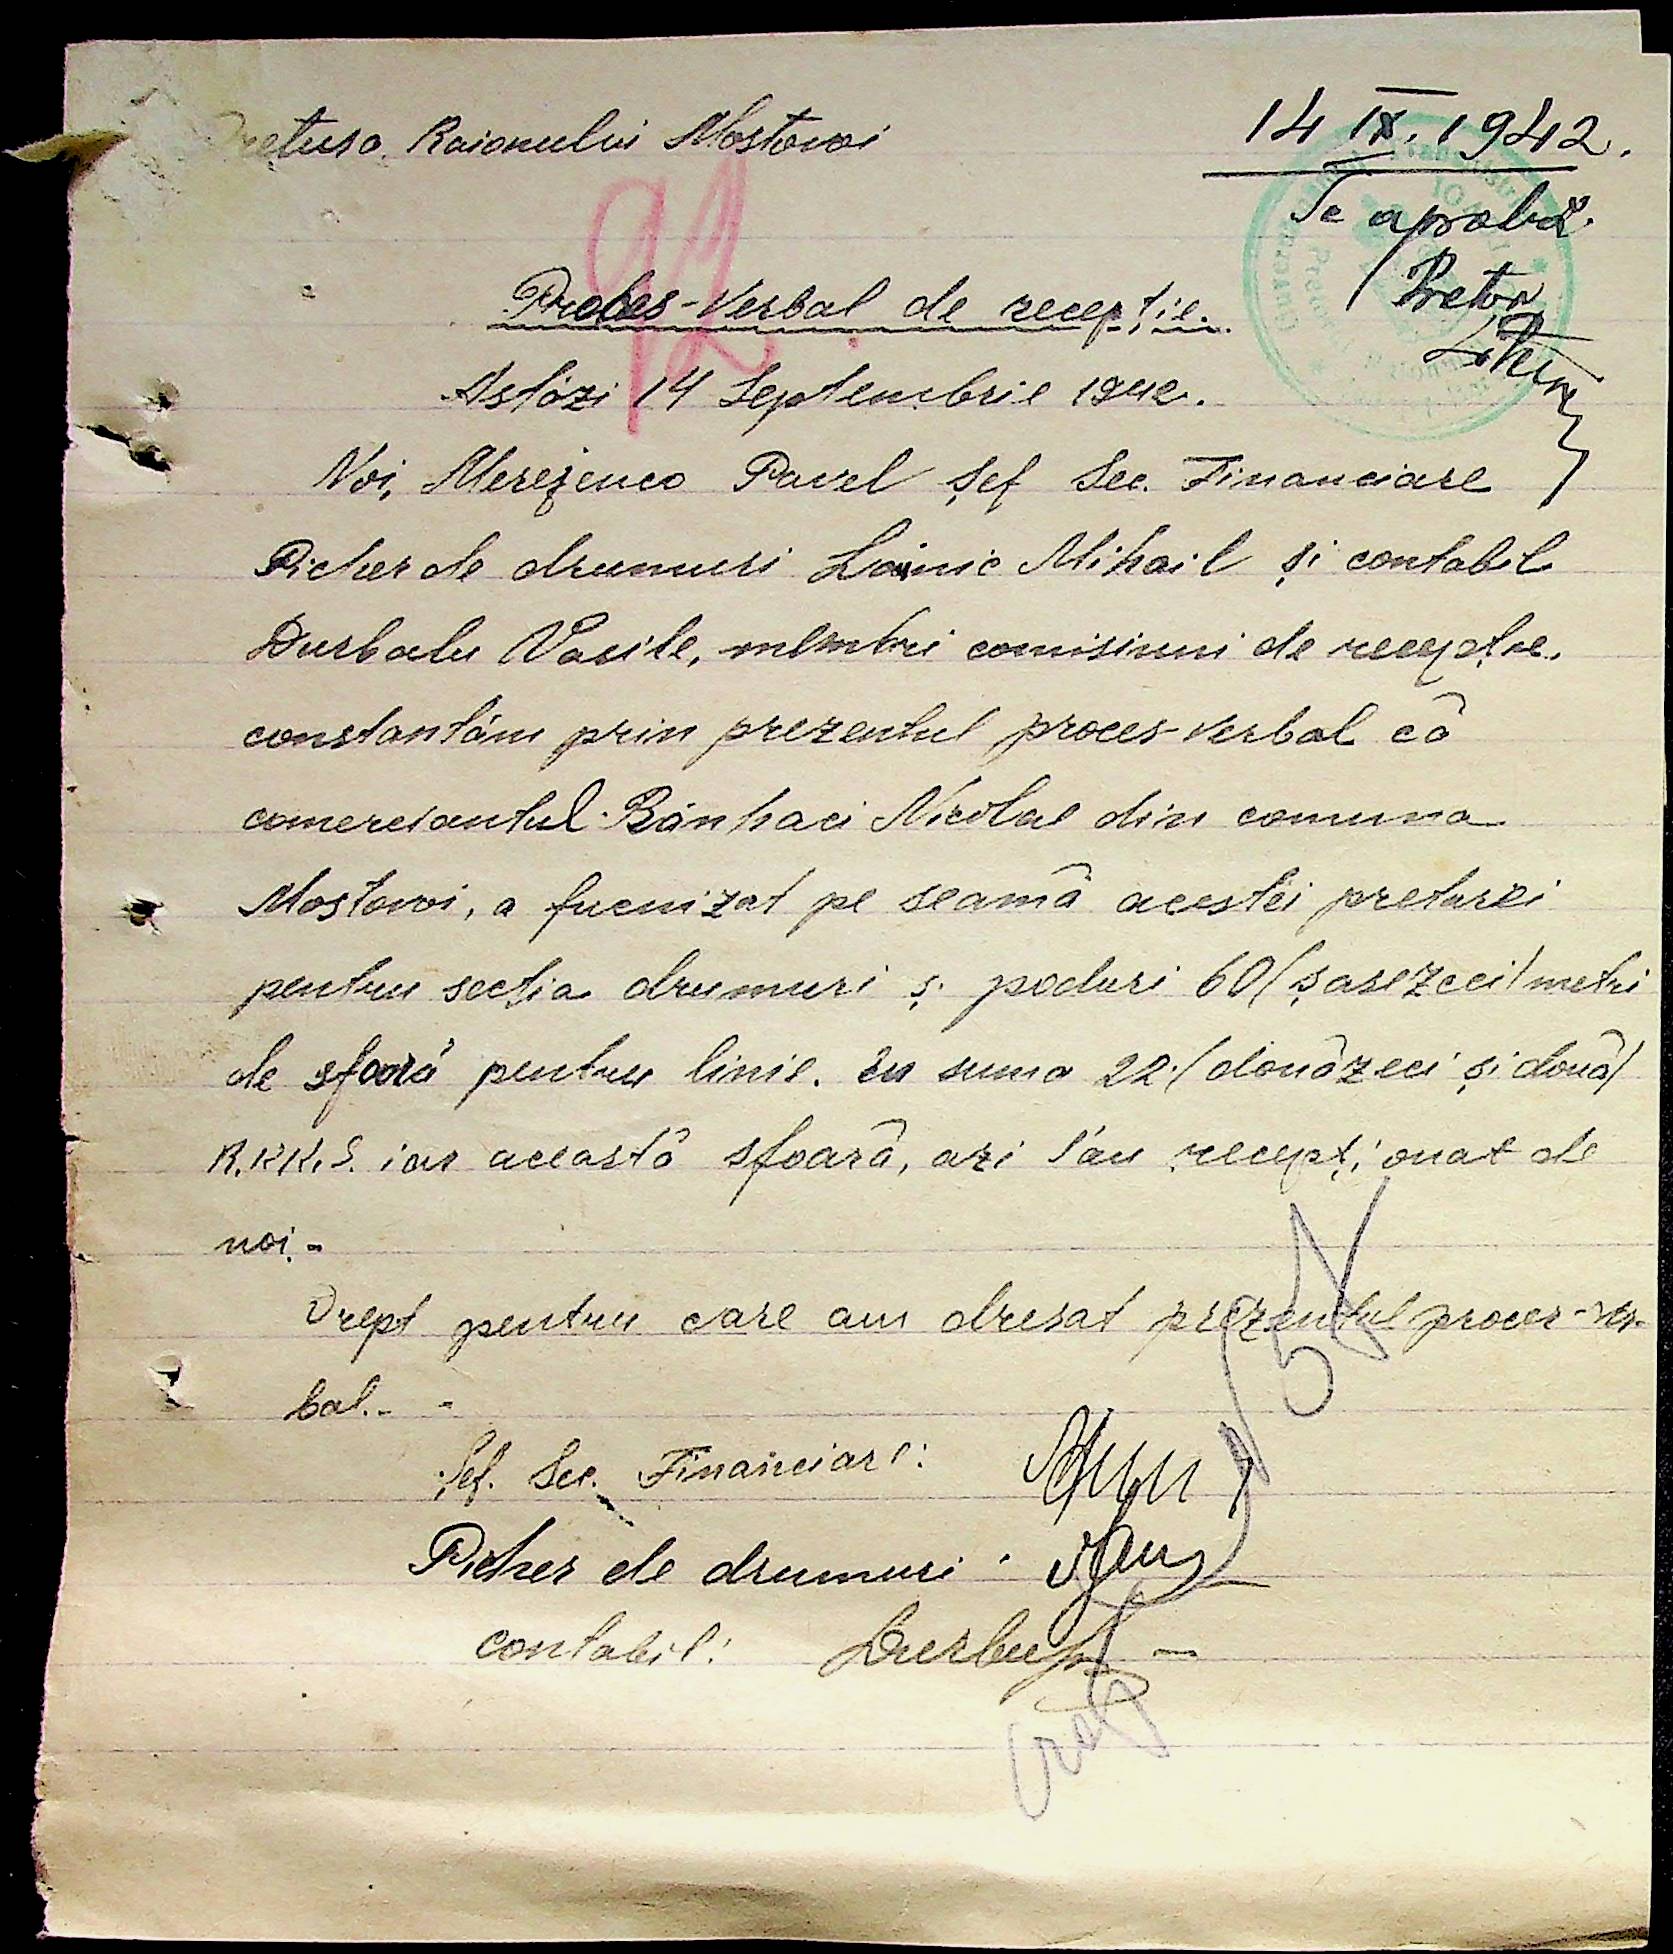 Pretura Raionului Mostovoi
14 IX. 1942.
Se aprobă.
Pretor
92
Proces-Verbal de recepție.
Astăzi 14 Septembrie 1942.
Noi, Merejenco Pavel șef Sec. Financiare
Picher de drumuri Lainic Mihail și contabil
Durbalu Vasile, membri comisiuni de recepție,
constantăm prin prezentul proces-verbal că
comerciantul Bânhaci Nicolae din comuna
Mostovoi, a furnizat pe seamă acestei preturei
pentru secția drumuri ș. poduri 60/șasezeci/metri
de sfoară pentru linie. În suma 22./douăzeci și două/
R.KK.S. iar această sfoară, azi s'au recepționat de
noi.-
Drept pentru care am dresat prezentul proces-ver-
bal.-
Șef. Sec. Financiare:
Picher de drumuri:
contabil: